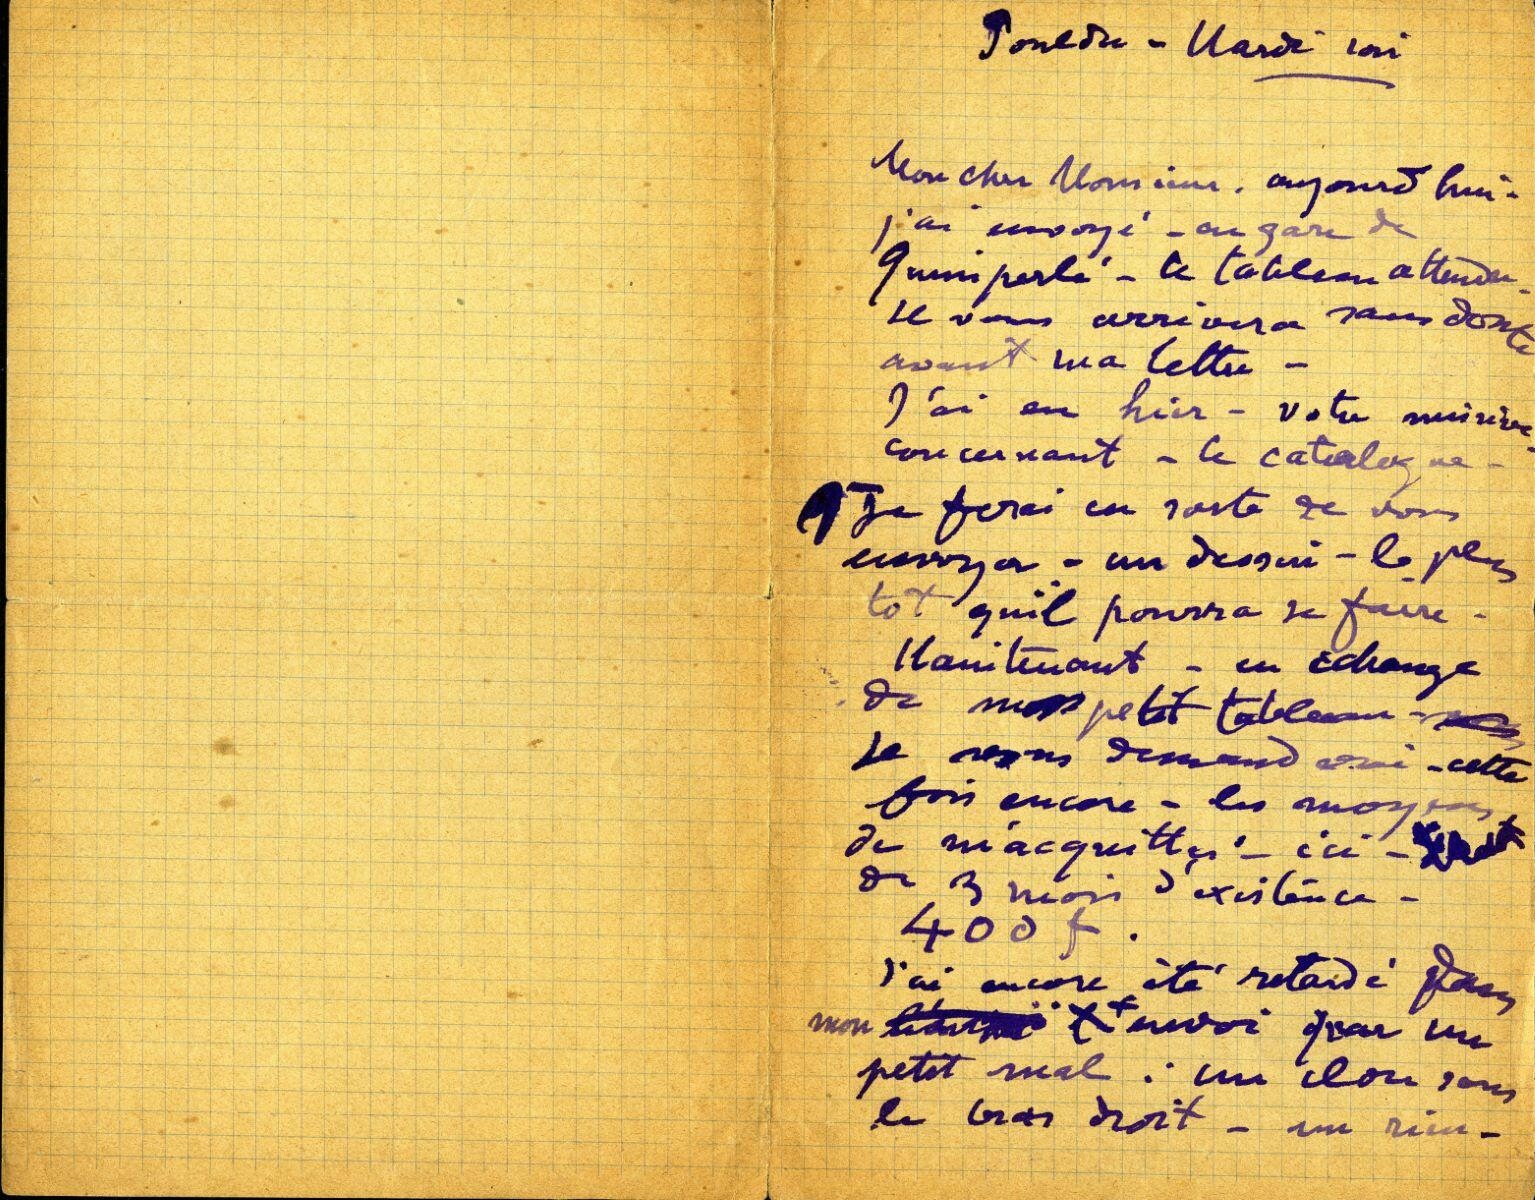 Pouldu - Mardi soir
Mon cher Monsieur. aujourd'hui -
j'ai envoyé - en gare de
Quimperlé - le tableau attendu -
Il vous arrivera sans doute
avant ma lettre -
J'ai eu hier - votre missive -
concernant - le catalogue -
Je ferai en sorte de vous
envoyer - un dessin - le plus
tot qu'il pourra se faire -
Maintenant - en échange
de mon petit tableau -
Je vous demanderai - cette
fois encore - les moyens
de m'acquitter - ici -
de 3 mois d'existence -
400 f.
J'ai encore été retardé dans
mon envoi par un
petit mal : un clou sous
le bras droit - un rien -